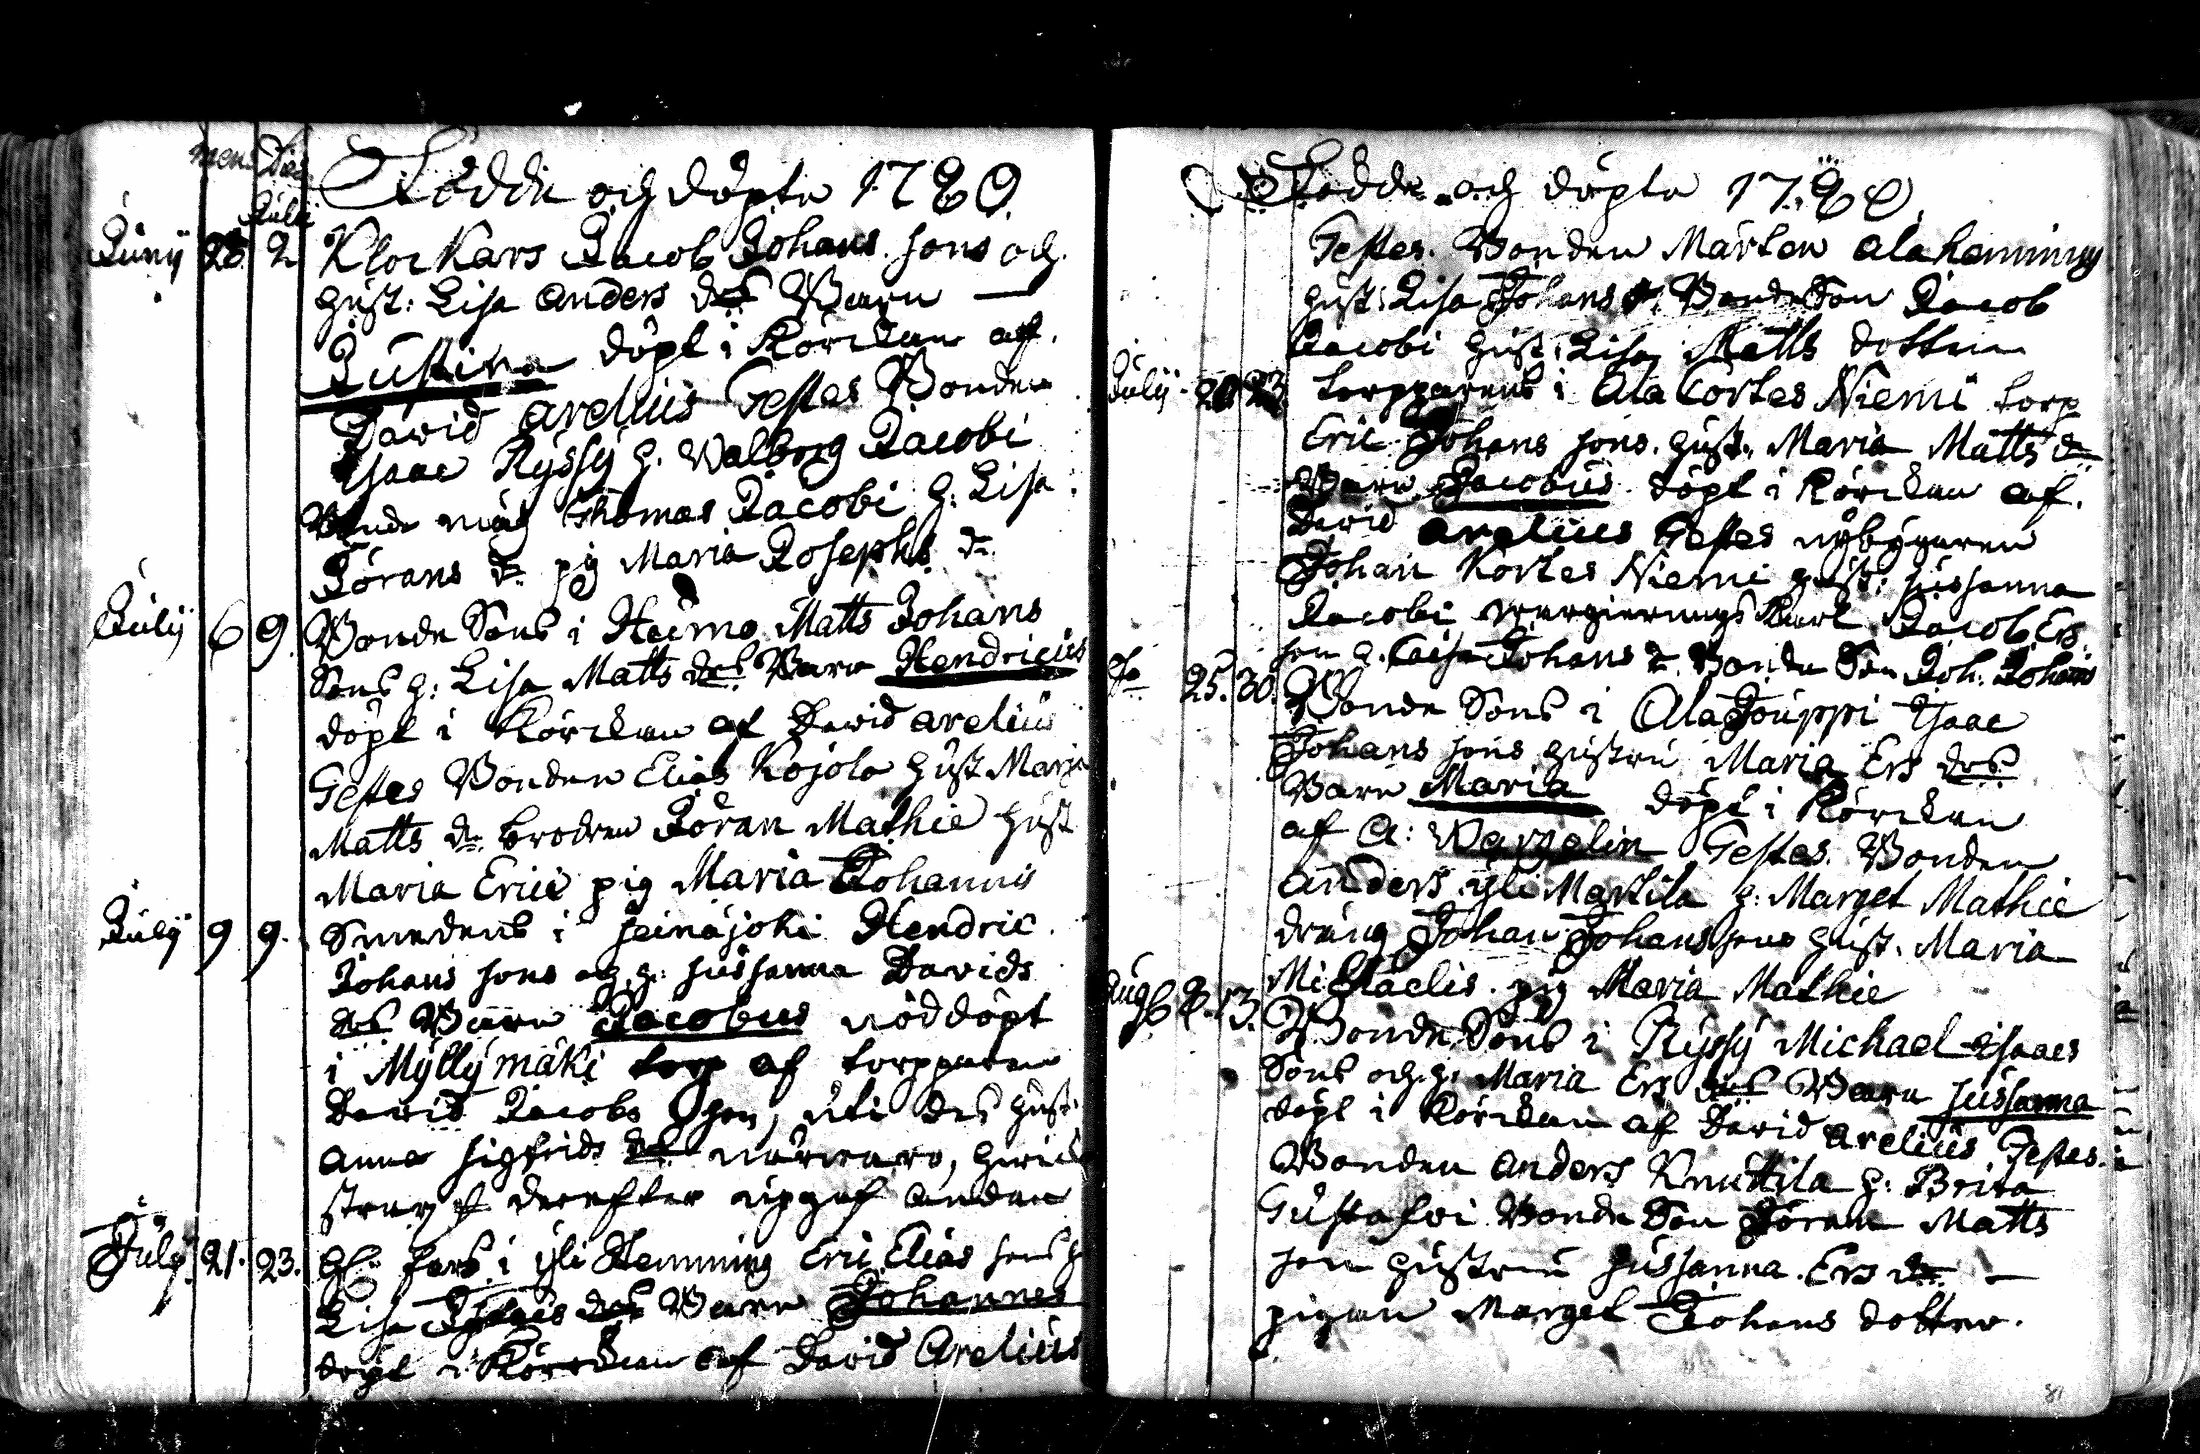 mens Dies
Födde och döpte 1780
Julii
Junij 28 2 Klockars Jacob Johans sons och
hust: Lisa Anders drs Barn
Justina döpt i Körckan af
David Arelius Testes Bonden
Isaac Ryssy h. Walborg Jacobi
Bonde måg Thomas Jacobi h: Lisa
Jörans dr pig Maria Josephs dr
Julij 6 9. Bonde Sons i Heimo Matts Johans
Sons h: Lisa Matts drs Barn Hendricus
döpt i Körckan af David Arelius
Testes Bonden Elias Kojola hust Maria
Matts dr brodren Jöran Mathie hust
Maria Erici pig Maria Johannis
Julij 9 9. Smedens i Seinäjoki Hendric
Johans sons och h: Sussanna Davids
drs Barn Jacobus nöddöpt
i Myllymäki torp af torpparen
David Jacobs son, uti des hust:
Anna Sigfrids drs närvaro, hvilcket
strax derefter upgaf andan
Julij 21. 23. i Yli Hemming Eric Elias sons h
Lisa drs Barn Johannes
döpt i Körckan af David Arelius
Födde och döpte 1780
Testes. Bonden Mårten Ala hemming
hust: Lisa Johans dr. Bonde Son Jacob
Jacobi hust: Lisa Matts dotter
Julij 20 23 torpparens i Ala Cortes Niemi torp
Eric Johans sons hust: Maria Matts dr
Barn Jacobus döpt i Körckan af
David Arelius Testes nybyggaren
Johan Kortes Niemi hust: Sussanna
Jacobi Jacob Ers
son h. Caisa Johans dr. Bonde Son Joh. Johans
25. 30. Bonde Sons i Ala Jouppi Isaac
Johans sons hustru Maria Ers drs
Barn Maria döpt i Körckan
af A: Wegelin Testes. Bonden
Anders Yli Marttila h: Marget Mathie
dräng Johan Johans sons hust. Maria
Michaelis. pig Maria Mathie
Aug 8. 13. Bonde Sons i Ryssy Michael Isaacs
Sons och h: Maria Ers drs Barn Sussanna
döpt i Körckan af David Arelius Testes.
Bonden Anders Knuttila h: Brita
Gustafvi Bonde Son Jöran Matts
son hustru Sussanna Ers dr
pigan Marget Johans dotter.
81